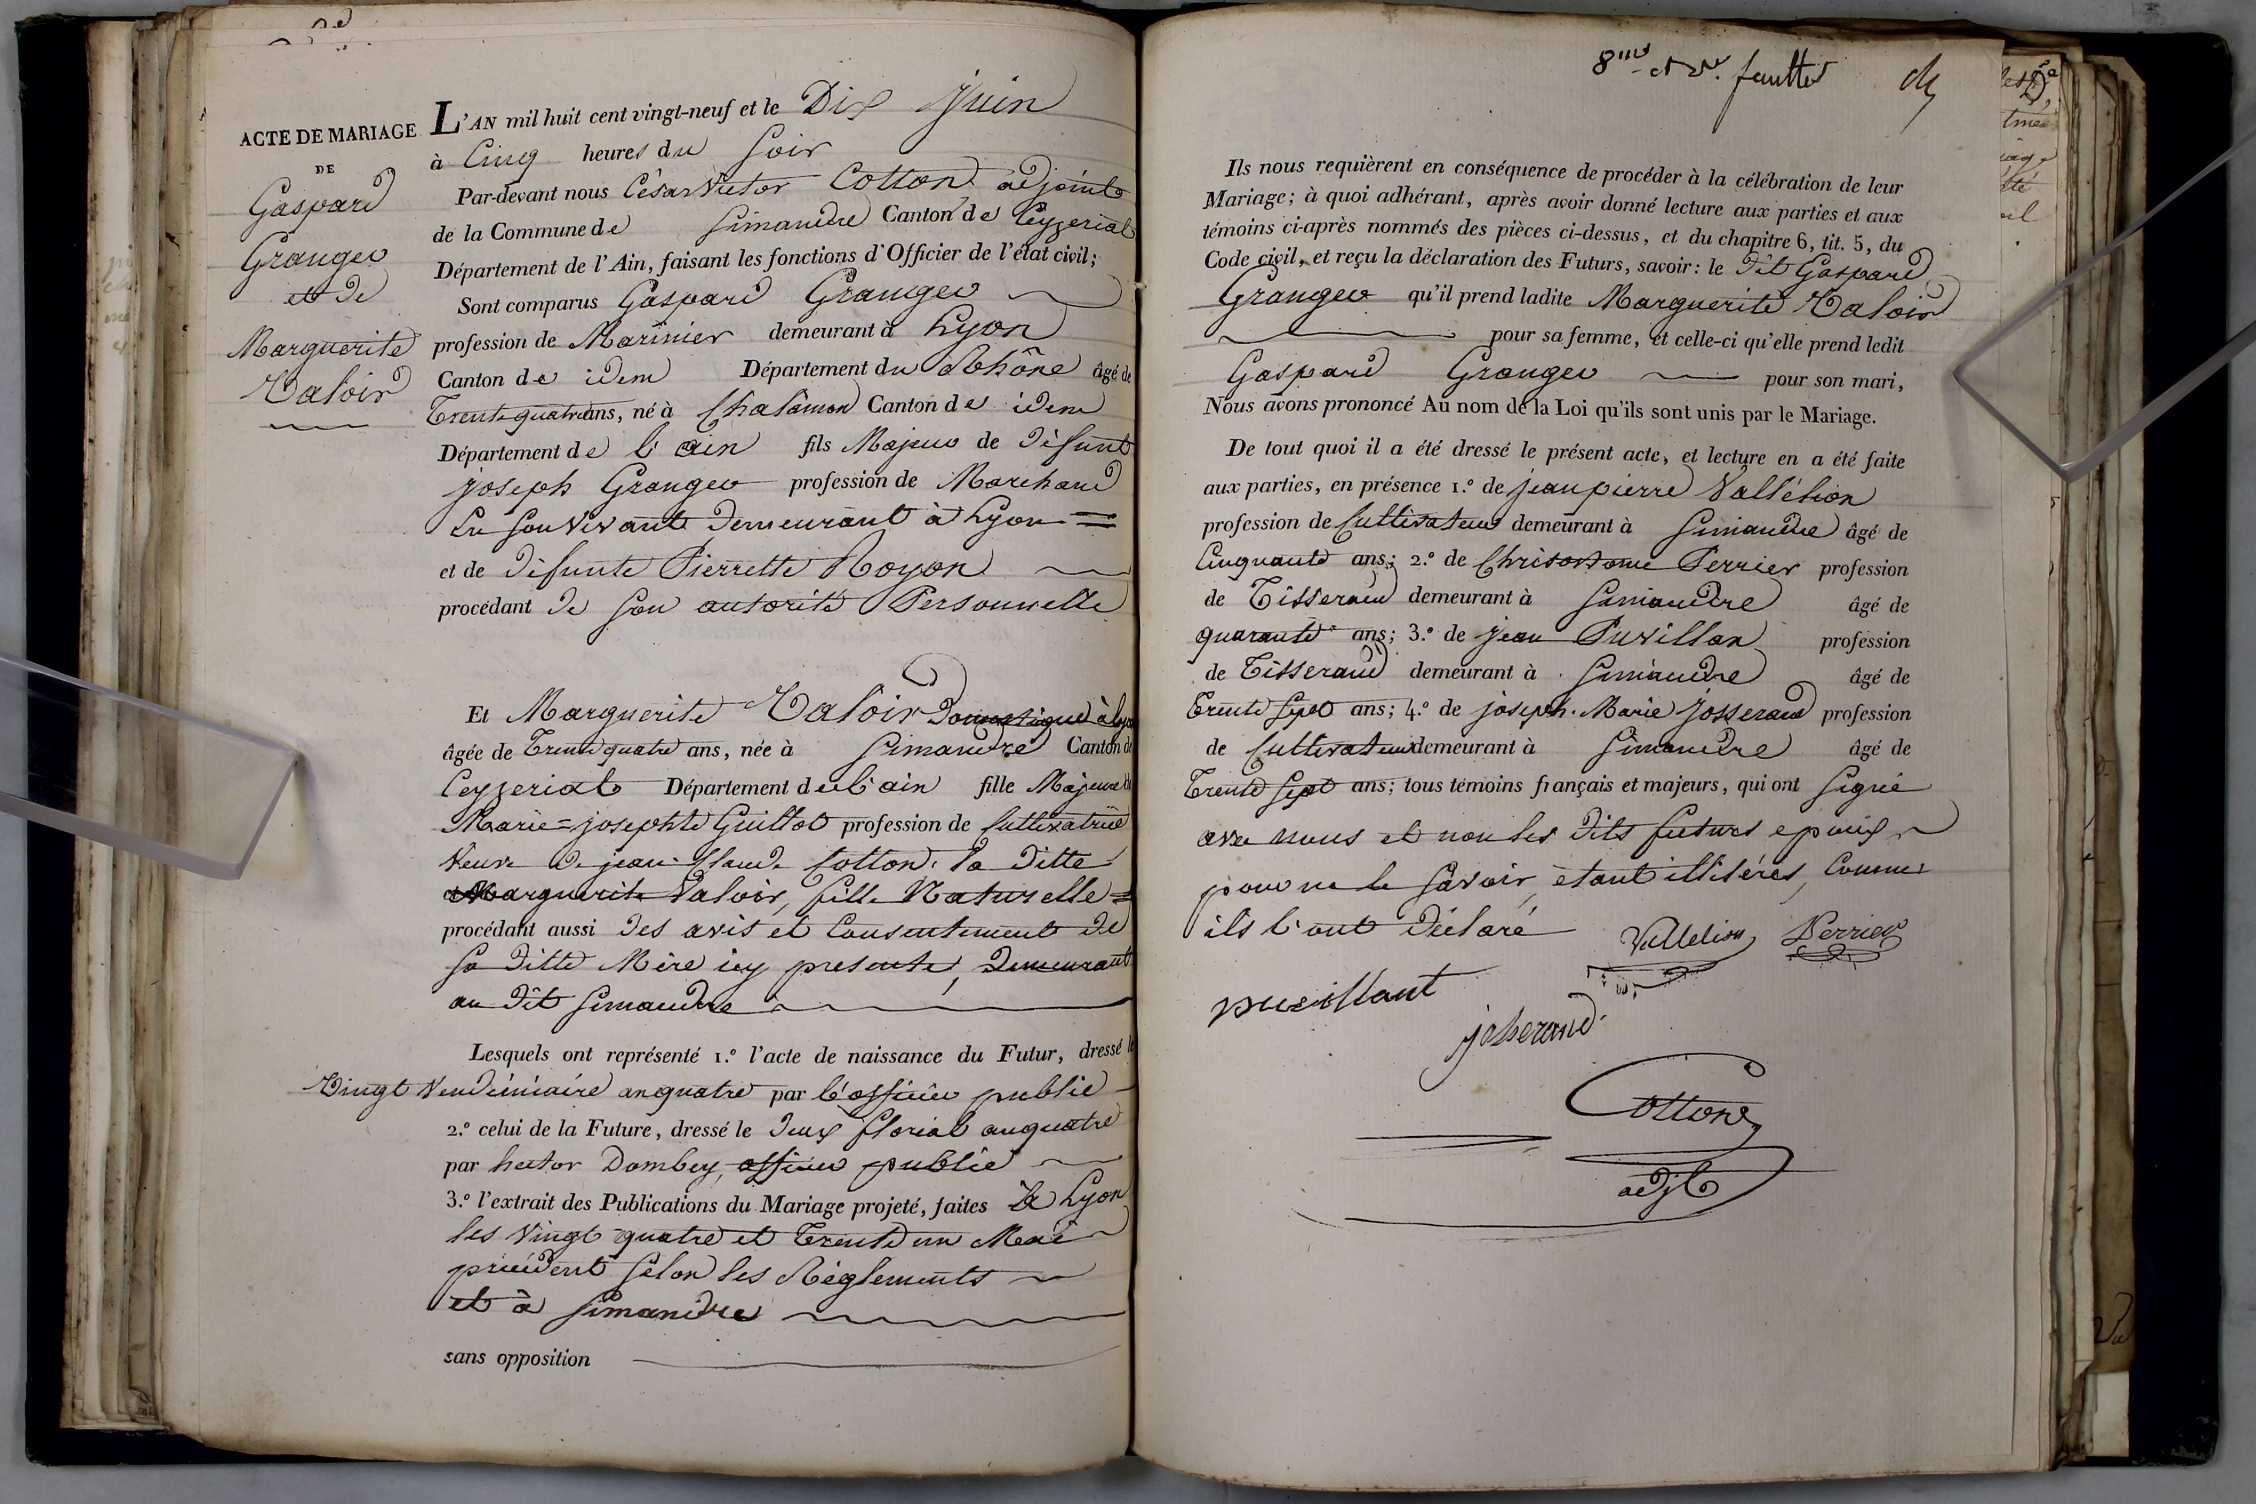 ACTE DE MARIAGE
DE
Gaspard
Granger
et de
Marguerite
Valoir
L'AN mil huit cent vingt-neuf et le Dix Juin
à Cinq heures du Soir
Par-devant nous César Victor Cotton adjoint
de la Commune de Simandre Canton de Ceyzeriat
Département de l'Ain, faisant les fonctions d'Officier de l'état civil;
Sont comparus Gaspard Granger
profession de Marinier demeurant à Lyon
Canton de idem Département du Rhône âgé de
Trente quatre ans, né à Chalamon Canton de idem
Département de l'ain fils Majeur de défunt
joseph Granger profession de Marchand
En Son Vivant demeurant à Lyon =
et de défunte Pierrette Royon
procédant de Son autorité Personnelle
Et Marguerite Valoir Domestique à Lyon
âgée de Trente quatre ans, née à Simandre Canton de
Ceyzeriat Département de l'ain fille Majeure de
Marie=josephte Guillot profession de Cultivatrice
Veuve de jean Claude Cotton, la ditte
Marguerite Valoir, fille Naturelle =
procédant aussi des avis et Consentement de
Sa ditte Mère icy presente, Demeurant
au dit Simandre
Lesquels ont représenté 1.º l'acte de naissance du Futur, dressé le
Vingt Vendémiaire an quatre par l'officier public
2.º celui de la Future, dressé le deux floréal an quatre
par hector Dombey, officier public
3.º l'extrait des Publications du Mariage projeté, faites à Lyon
les Vingt quatre et Trente un Mai
précédent Selon les Réglements
et à Simandre
sans opposition
8me et feuillet
Ils nous requièrent en conséquence de procéder à la célébration de leur
Mariage; à quoi adhérant, après avoir donné lecture aux parties et aux
témoins ci-après nommés des pièces ci-dessus, et du chapitre 6, tit. 5, du
Code civil, et reçu la déclaration des Futurs, savoir: le dit Gaspard
Granger qu'il prend ladite Marguerite Valoir
pour sa femme, et celle-ci qu'elle prend ledit
Gaspard Granger pour son mari,
Nous avons prononcé Au nom de la Loi qu'ils sont unis par le Mariage.
De tout quoi il a été dressé le présent acte, et lecture en a été faite
aux parties, en présence 1.º de jean pierre Vallélion
profession de Cultivateur demeurant à Simandre âgé de
Cinquante ans; 2.º de Chrisostome Perrier profession
de Tisserand demeurant à Simandre âgé de
quarante ans; 3.º de jean Puvillan profession
de Tisserand demeurant à Simandre âgé de
Trente Sept ans; 4.º de joseph Marie josserand profession
de Cultivateur demeurant à Simandre âgé de
Trente Sept ans; tous témoins français et majeurs, qui ont Signé
avec nous et non les dits futurs epoux
pour ne le Savoir, étant illitérés, Comme
ils l'ont Déclaré
Vallelion Perrier
puvillant
josserand
Cotton
adjt